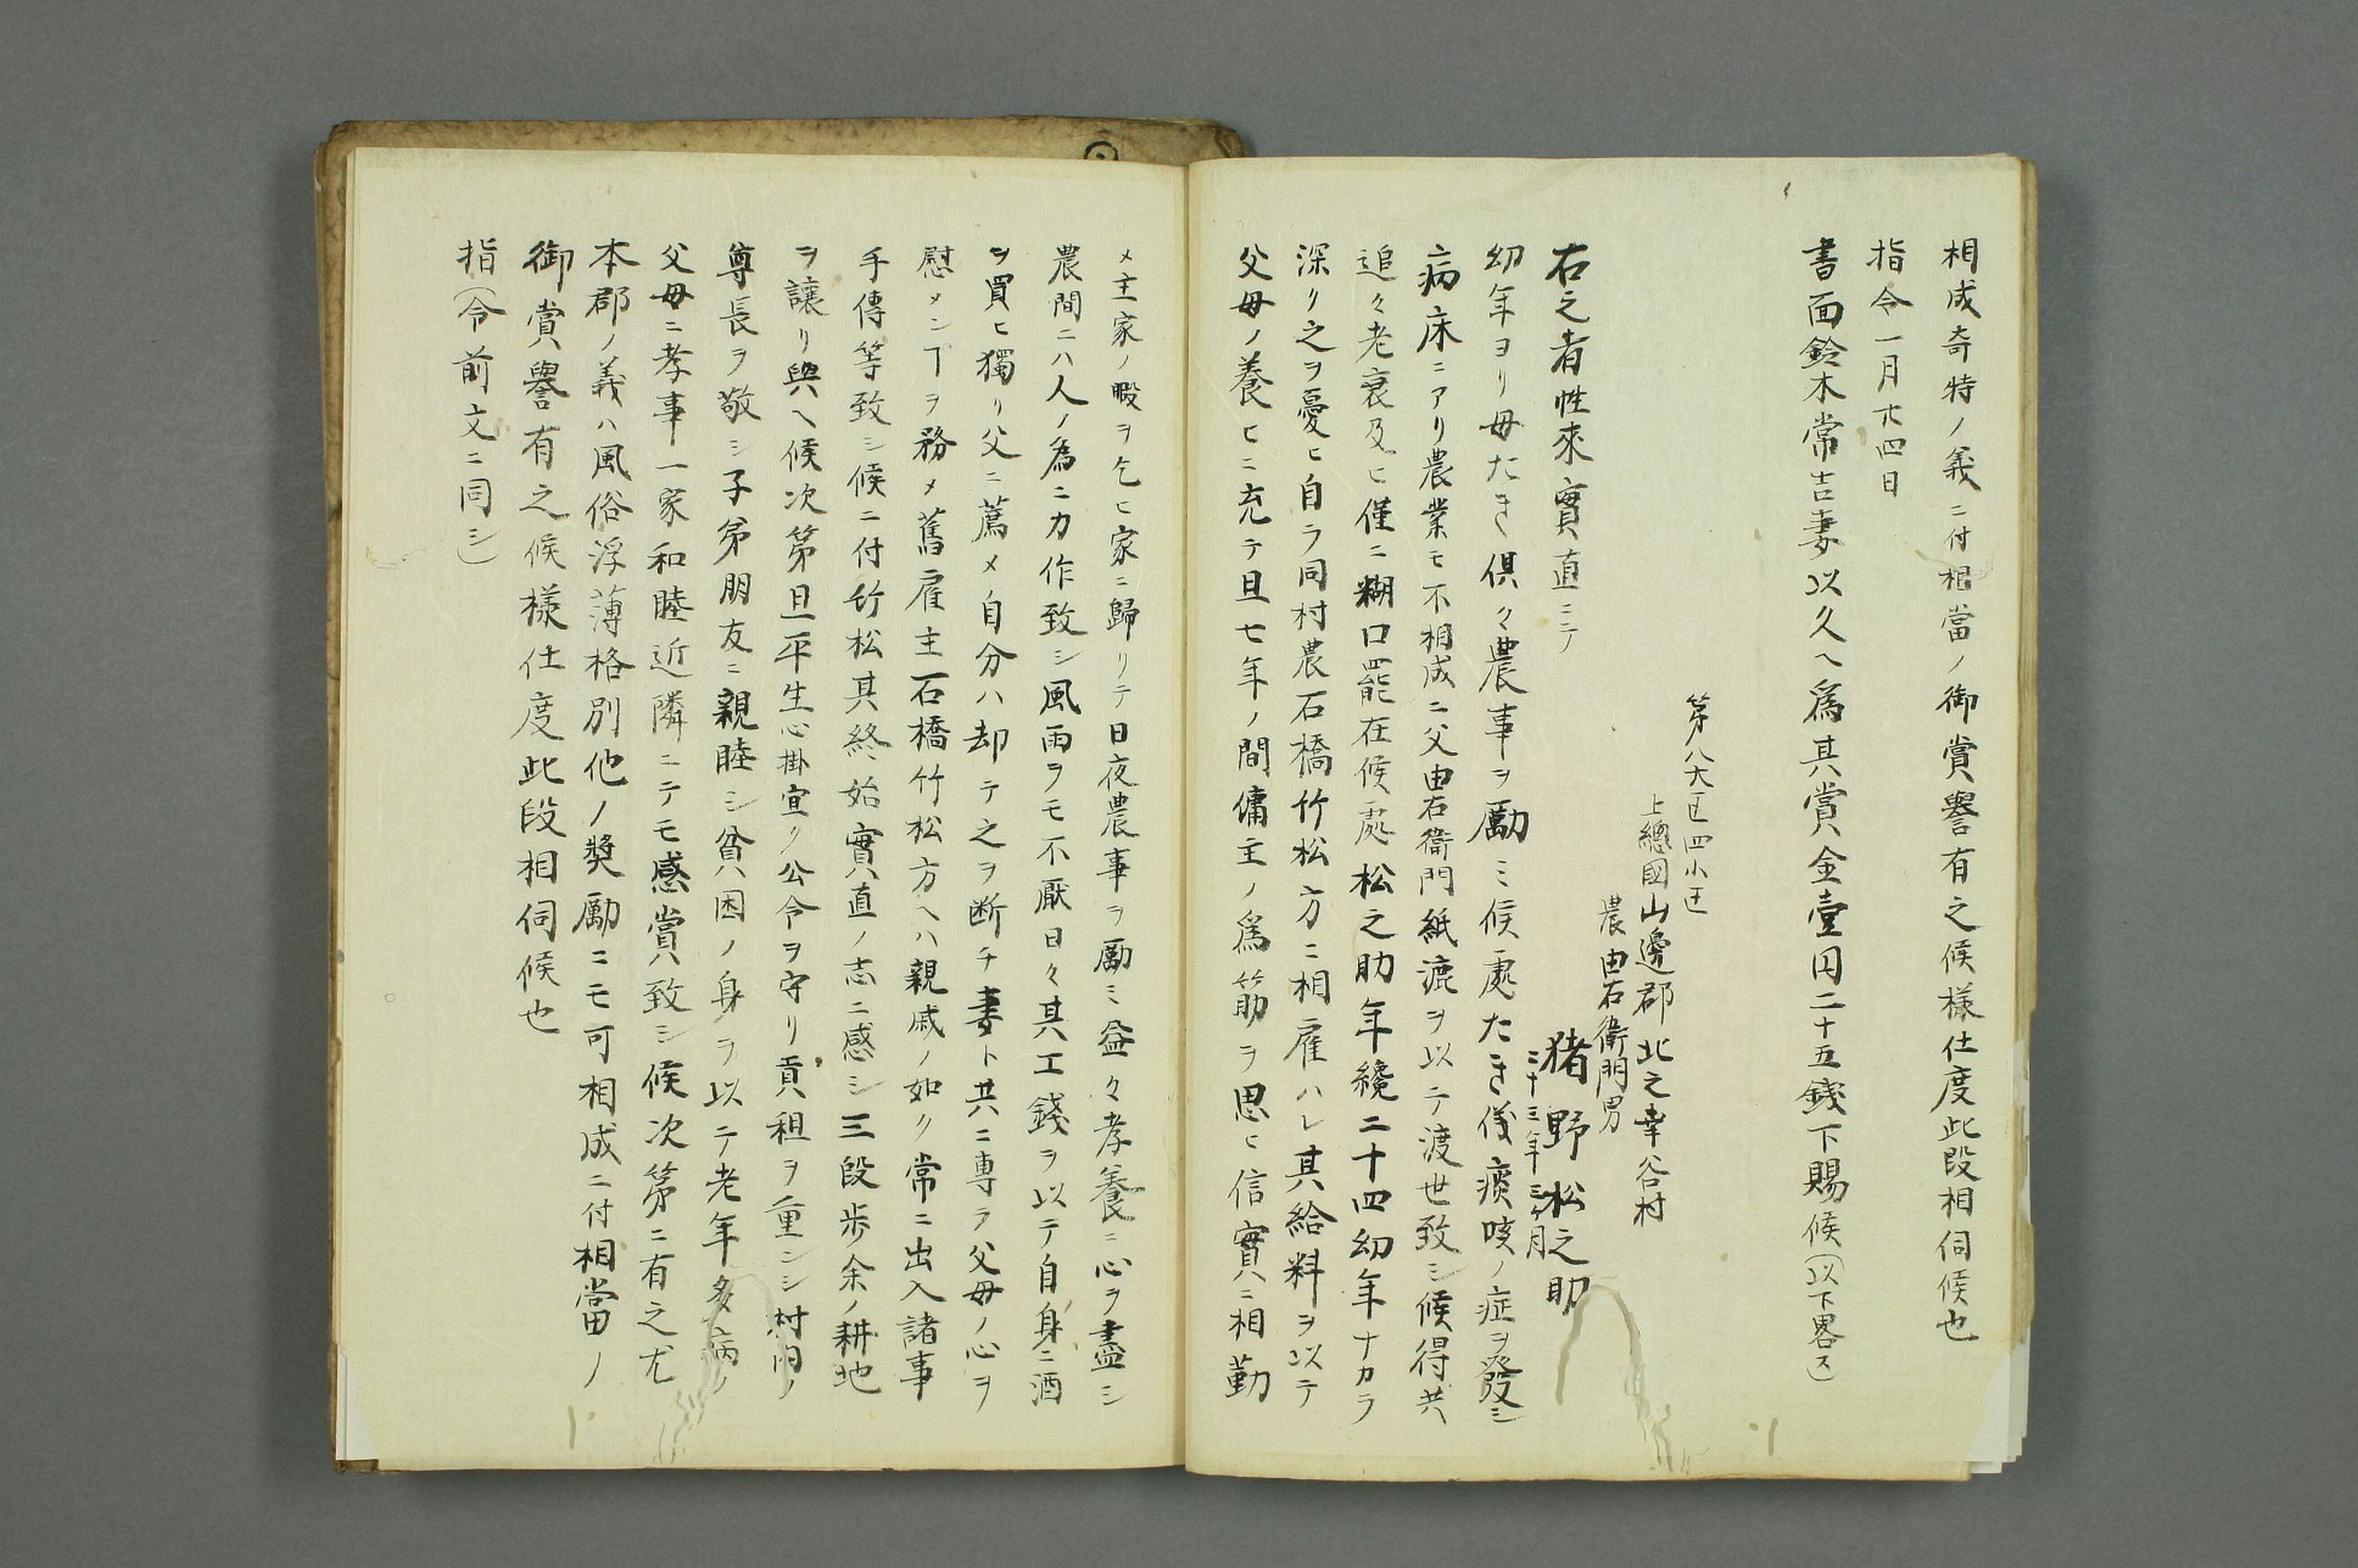 相成奇特ノ義ニ付相當ノ御賞譽有之候様仕度此段相伺候也
指令一月廿四日
書面鈴木常吉妻以久ヘ爲其賞金壹円二十五錢下賜候（以下畧ス）
第八大区四小区
上總國山邊郡北之幸谷村
農由右衛門男
猪野松之助
二十三年三ヶ月
右之者性來實直ニテ
幼年ヨリ母たき倶々農事ヲ勵ミ候處たき儀痰咳ノ症ヲ發シ
病床ニアリ農業モ不相成ニ父由右衛門紙漉ヲ以テ渡世致シ候得共
追々老衰及ヒ僅ニ糊口罷在候處松之助年纔二十四幼年ナカラ
深ク之ヲ憂ヒ自ラ同村農石橋竹松方ニ相雇ハレ其給料ヲ以テ
父母ノ養ヒニ充テ且七年ノ間傭主ノ爲筋ヲ思ヒ信實ニ相勤
メ主家ノ暇ヲ乞ヒ家ニ歸リテ日夜農事ヲ勵ミ益々孝養ニ心ヲ盡シ
農間ニハ人ノ為ニ力作致シ風雨ヲモ不厭日々其工錢ヲ以テ自身ニ酒
ヲ買ヒ獨リ父ニ薦メ自分ハ却テ之ヲ断チ妻ト共ニ専ラ父母ノ心ヲ
慰メンヿヲ務メ舊雇主石橋竹松方ヘハ親戚ノ如ク常ニ出入諸事
手傳等致シ候ニ付竹松其終始實直ノ志ニ感シ三段歩余ノ耕地
ヲ讓リ與ヘ候次第且平生心掛宜ク公令ヲ守リ貢租ヲ重ンシ村内ノ
尊長ヲ敬シ子弟朋友ニ親睦シ貧困ノ身ヲ以テ老年多病ノ
父母ニ孝事一家和睦近隣ニテモ感賞致シ候次第ニ有之尤
本郡ノ義ハ風俗浮薄格別他ノ奬勵ニモ可相成ニ付相當ノ
御賞譽有之候様仕度此段相伺候也
指（令前文ニ同シ）